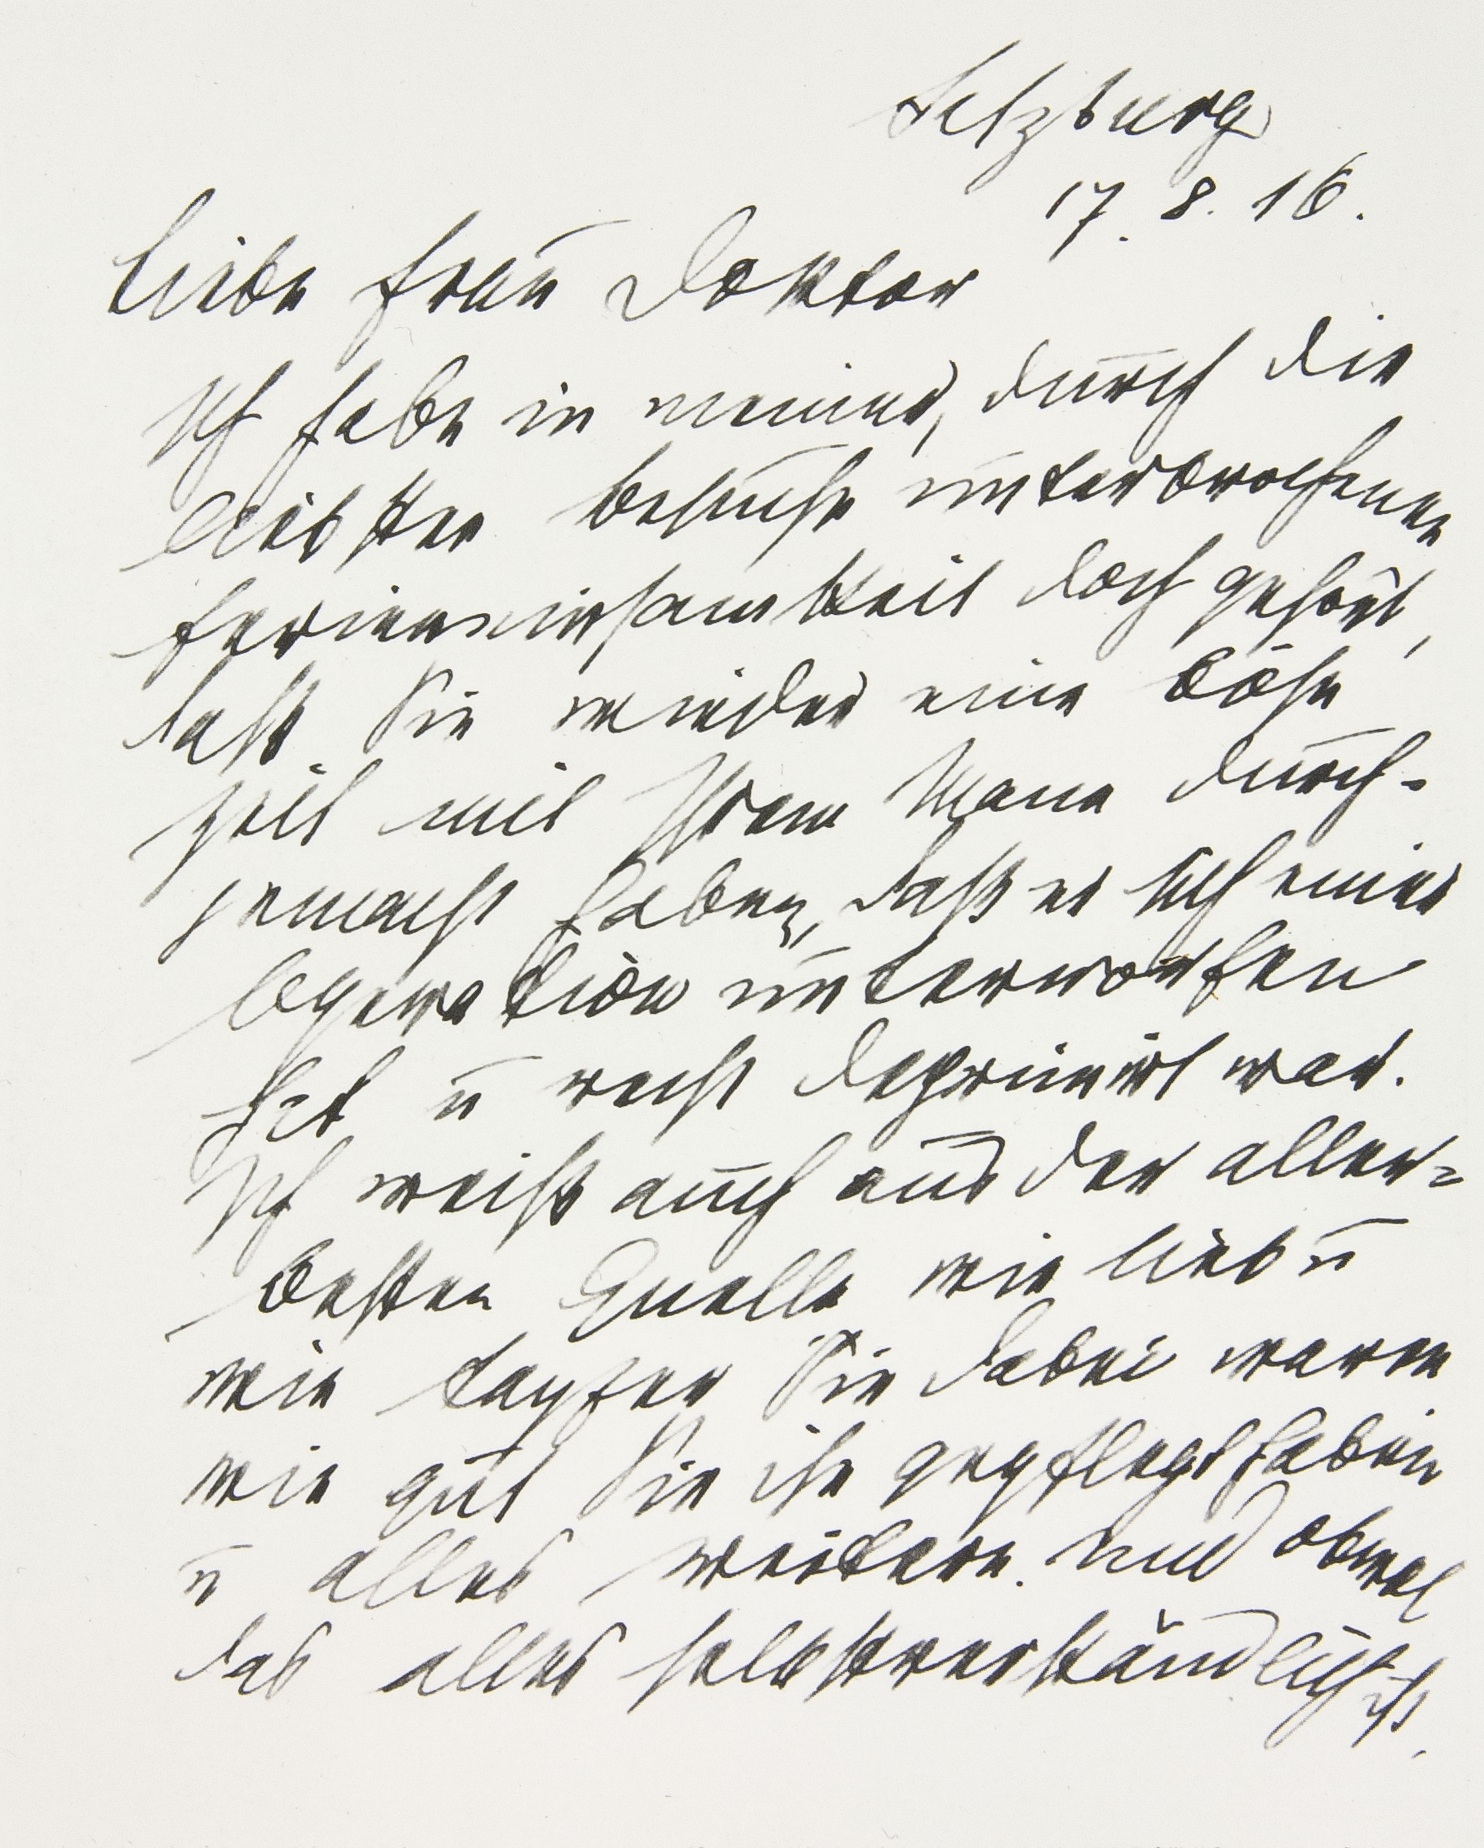 Salzburg
17. 8. 16.
Liebe Frau Doktor
Ich habe in meiner, durch die
liebsten Besuche unterbrochenen
Ferieneinsamkeit doch gehört,
daß Sie wieder eine böse
Zeit mit Ihrem Mann durch-
gemacht haben, daß er sich einer
Operation unterworfen
hat u recht deprimirt war.
Ich weiß auch aus der aller-
besten Quelle wie lieb u
wie tapfer Sie dabei waren
wie gut Sie ihn gepflegt haben
u alles weitere. Und obwol
das alles selbstverständlich ist,